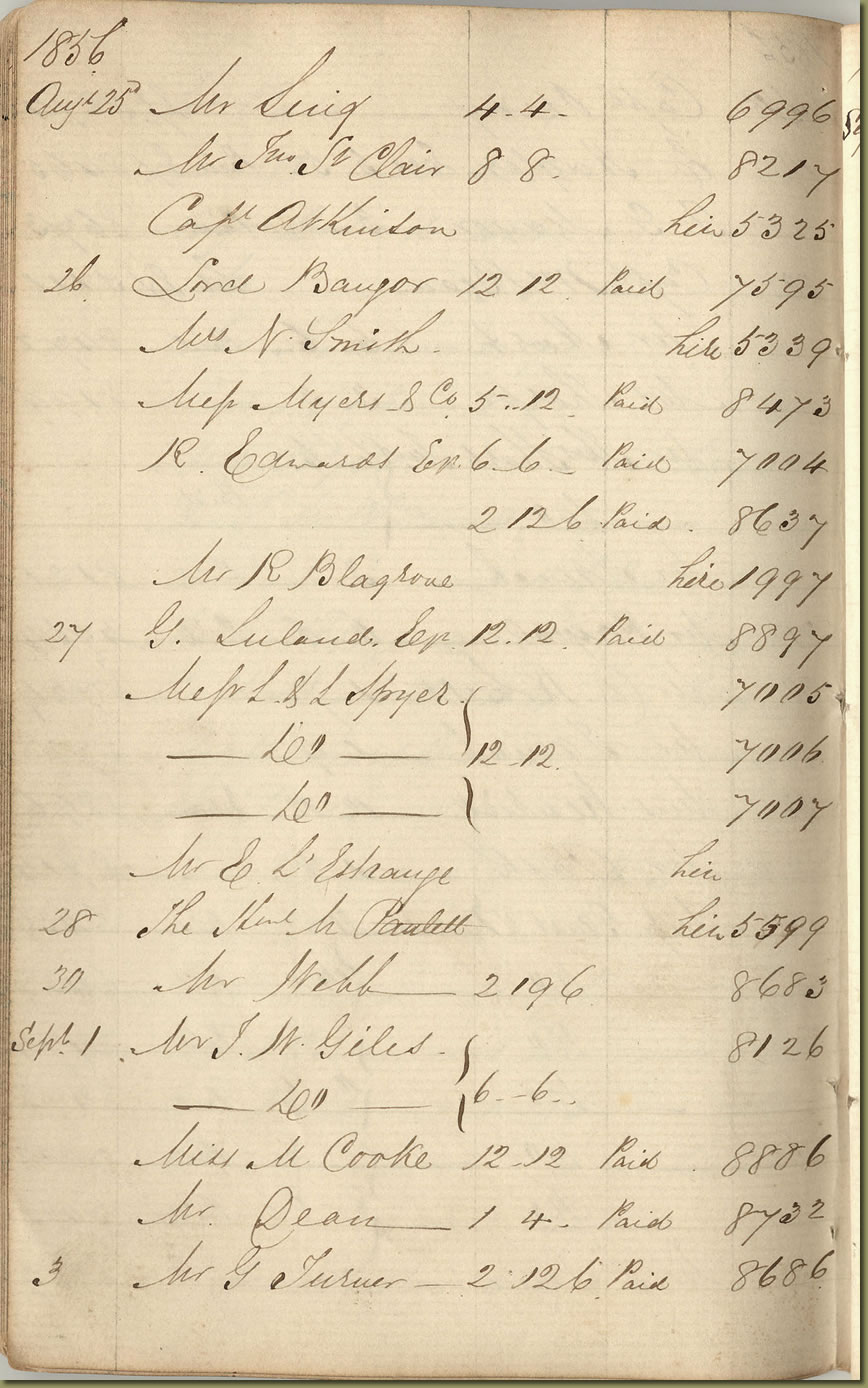 1856
Augt 25 Mr Ling 4-4- 6996
Mr Jno. St Clair 8 8. 8217
Capt Atkinson hire 5325
26 Lord Bangor 12 12. Paid 7595
Mrs N. Smith. hire 5339
Messrs Myers & Co 5..12. Paid 8473
R. Edwards Esq. 6-6- Paid 7004
2 12 6 Paid. 8637
Mr R Blagrove hire 1997
27 G. Luland. Esq. 12.12. Paid 8897
Messrs L & L Spyer. 7005
Do 12-12. 7006
Do 7007
Mr E. L'Estrange hire
28 The Honl M Paulett hire 5599
30 Mr Webb 2 19 6 8683
Sept. 1 Mr J. W. Giles. 8126
Do 6--6..
Miss M Cooke 12-12 Paid. 8886
Mr. Dean 1 4- Paid 8732
3 Mr G Turner 2 12 6 Paid 8686